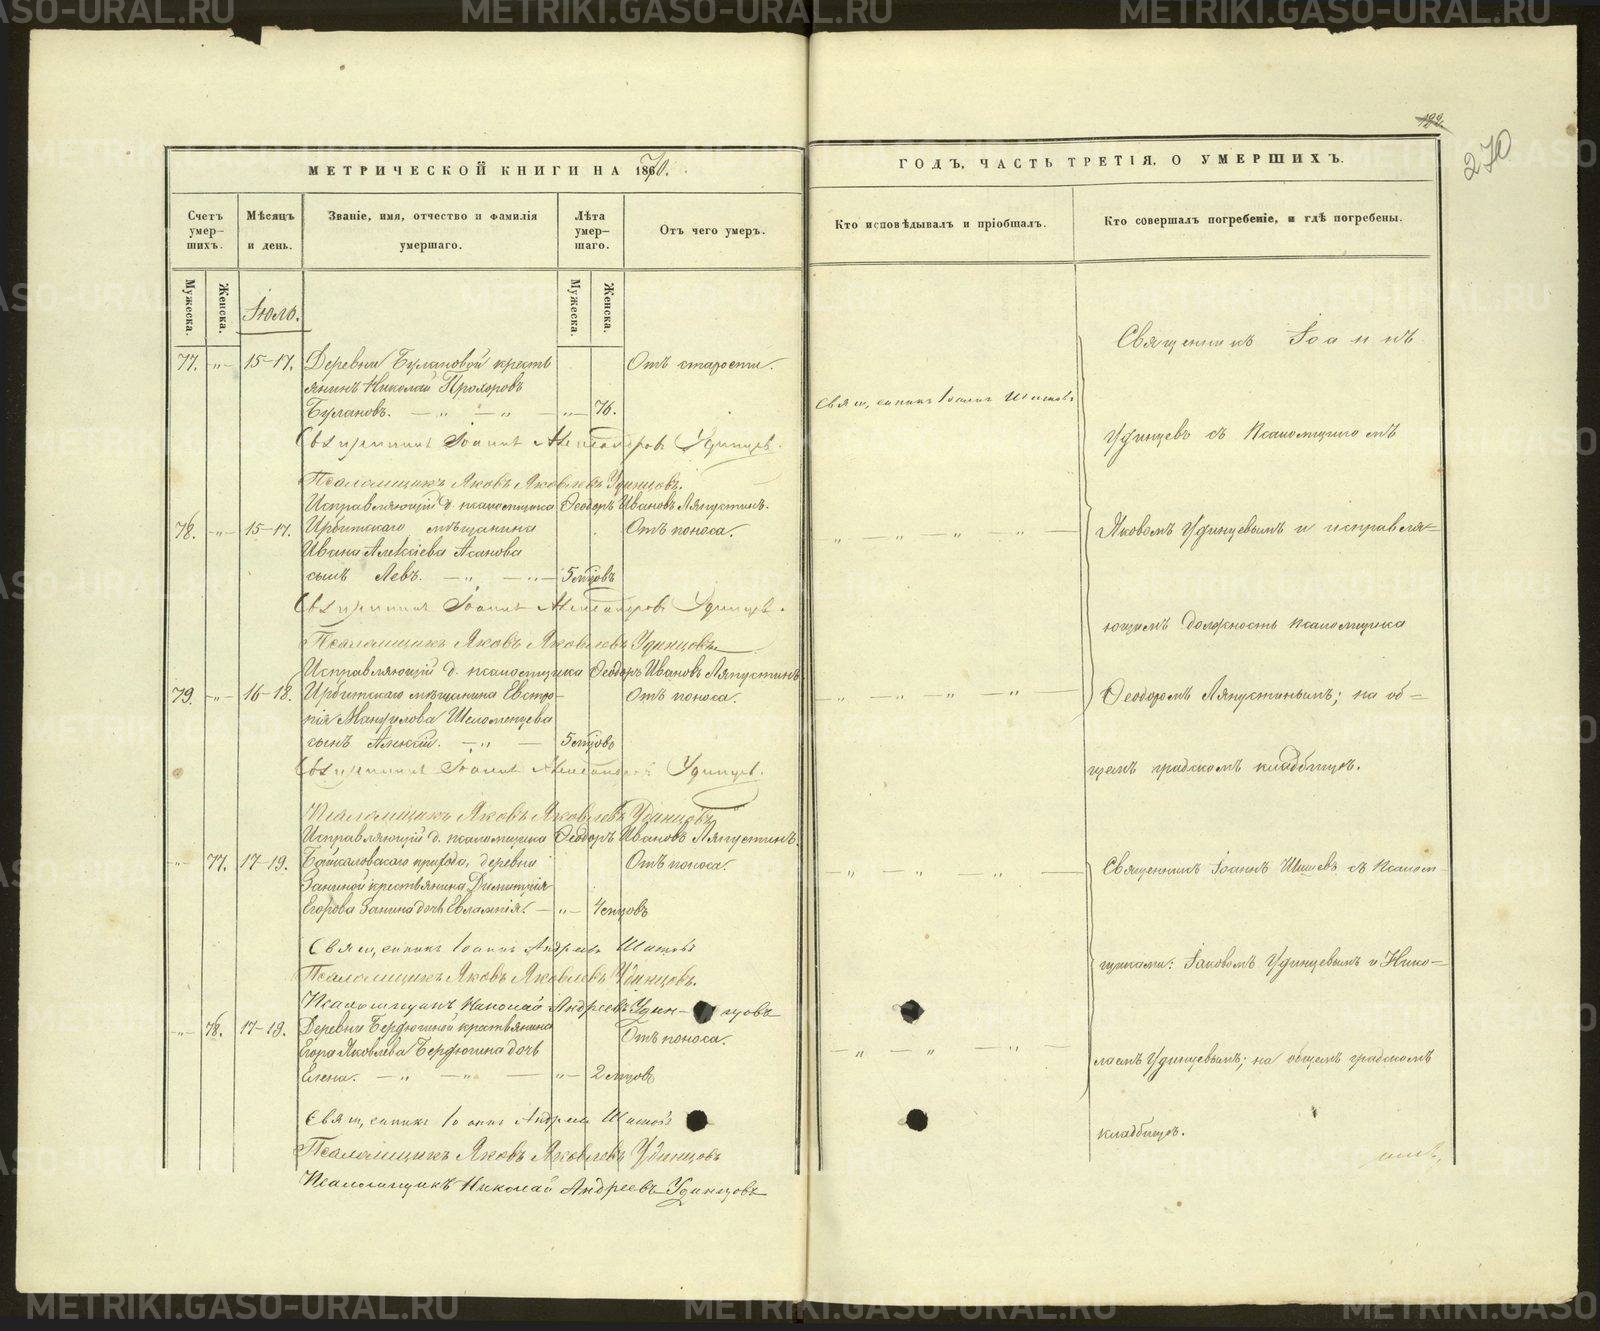 МЕТРИЧЕСКОЙ КНИГИ НА 1870.
Счетъ умер-шихъ.
Мѣсяцъ и день.
Званіе, имя, отчество и фамилія умершаго.
Лѣта умер-шаго.
Отъ чего умеръ.
Мужеска.
Женска.
Мужеска.
Женска.
Іюль.
77. -„- 15-17. Деревни Булановой кресть
янинъ Николай Прохоровъ
Булановъ. — „ — „ — „ 76.
Отъ старости.
Священникъ Іоаннъ Александровъ Удинцевъ.
Псаломщикъ Яковъ Яковлевъ Удинцовъ.
Исправляющій д. псаломщика Ѳеодоръ Ивановъ Ляпустинъ.
78. -„- 15-17. Ирбитскаго мѣщанина
Ивана Алексіева Асанова
сынъ Левъ. — „ — „ — 5 мцовъ
Отъ поноса.
Священникъ Іоаннъ Александровъ Удинцевъ.
Псаломщикъ Яковъ Яковлевъ Удинцовъ.
Исправляющій д. псаломщика Ѳеодоръ Ивановъ Ляпустинъ
79. -„- 16-18. Ирбитскаго мѣщанина Евстро-
пія Мануилова Шеломенцева
сынъ Алексій. — „ — 5 мцовъ
Отъ поноса.
Священникъ Іоаннъ Александровъ Удинцевъ.
Псаломщикъ Яковъ Яковлевъ Удинцовъ
Исправляющій д. псаломщика Ѳеодоръ Ивановъ Ляпустинъ.
-„- 77. 17-19. Байкаловскаго прихода, деревни
Заниной крестьянина Димитрія
Егорова Занина дочь Евлампія. — „ — 4 мцовъ
Отъ поноса.
Священникъ Іоаннъ Андреевъ Шишовъ
Псаломщикъ Яковъ Яковлевъ Удинцовъ.
Псаломщикъ Николай Андреевъ Удин-цовъ
-„- 78. 17-19. Деревни Бердюгиной крестьянина
Егора Яковлева Бердюгина дочь
Елена. — „ — „ — „ — 2 мцовъ
Отъ поноса.
Священникъ Іоаннъ Андреевъ Шишовъ
Псаломщикъ Яковъ Яковлевъ Удинцовъ
Псаломщикъ Николай Андреевъ Удинцовъ
270
ГОДЪ, ЧАСТЬ ТРЕТІЯ, О УМЕРШИХЪ.
Кто исповѣдывалъ и пріобщалъ.
Кто совершалъ погребеніе, и гдѣ погребены.
Священникъ Іоаннъ Шишовъ
Священникъ Іоаннъ
Удинцевъ съ Псаломщикомъ
Яковомъ Удинцевымъ и исправля-
ющимъ должность псаломщика
Ѳеодоромъ Ляпустинымъ; на об-
щемъ градскомъ кладбищѣ.
Священникъ Іоаннъ Шишевъ съ Псалом-
щиками: Іаковомъ Удинцевымъ и Нико-
лаемъ Удинцевымъ; на общемъ градскомъ
кладбищѣ.
METRIKI.GASO-URAL.RU